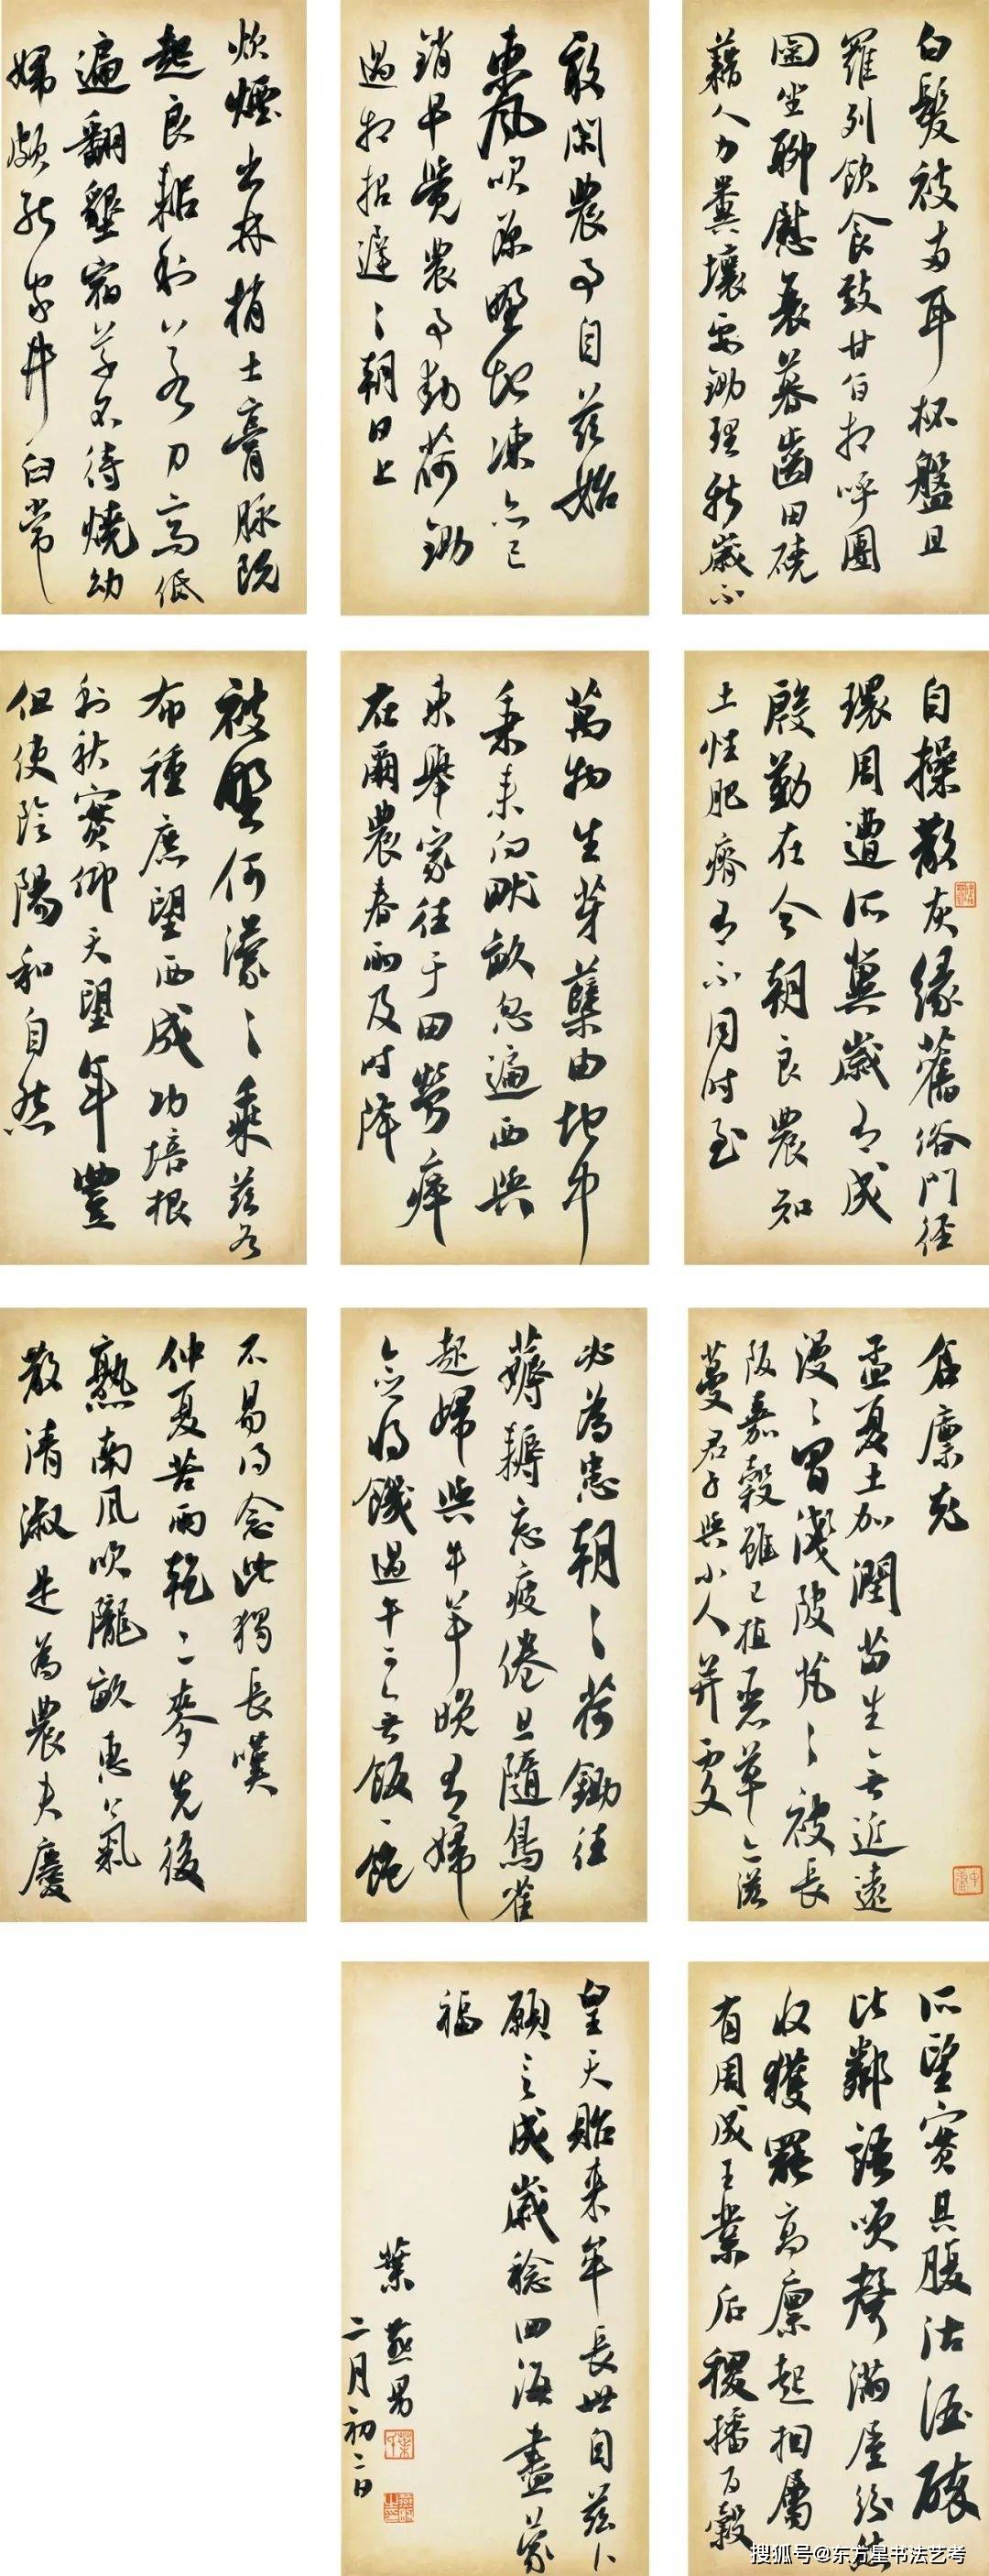 白髮被兩耳杯盤且
羅列飲食致甘旨相呼團
圞坐聊慰衰暮齒田磽
藉人力糞壤要鋤理新歲不
敢閑農事自茲始
東風吹原野地凍亦已
銷早覺農事動荷鋤
過相招遲〻朝日上
炊煙出林梢土膏脉既
起良耜利若刀高低
遍翻墾宿草不待燒幼
婦頗能家井臼常
自操散灰緣舊俗門徑
環周遭所冀歲有成
殷勤在今朝良農知
土性肥瘠有不同時至
萬物生芽蘖由地中
秉耒向畎畝忽遍西與
東舉家往于田勞瘁
在爾農春雨及時降
被野何濛〻乘茲各
布種庶望西成功培根
利秋實仰天望年豐
但使陰陽和自然
倉廩充
孟夏土加潤苗生無近遠
漫〻冒淺陂芃〻被長
阪嘉穀雖已植惡草亦滋
蔓君子與小人并處
必為患朝〻荷鋤往
薅耨忘疲倦旦隨鳥雀
起歸與牛羊晚有婦
念將饑過午無飯一飽
不易得念此獨長嘆
仲夏苦雨乾二麥先後
熟南風吹隴畝惠氣
散清淑是為農夫慶
所望實其腹沽酒醉
比鄰語笑聲滿屋紛然
收獲罷高廩起相屬
有周成王業后稷播百穀
皇天貽來年長世自茲卜
願言成歲稔四海盡蒙
福
葉燕男
二月初二日
搜狐号@东方星书法艺考